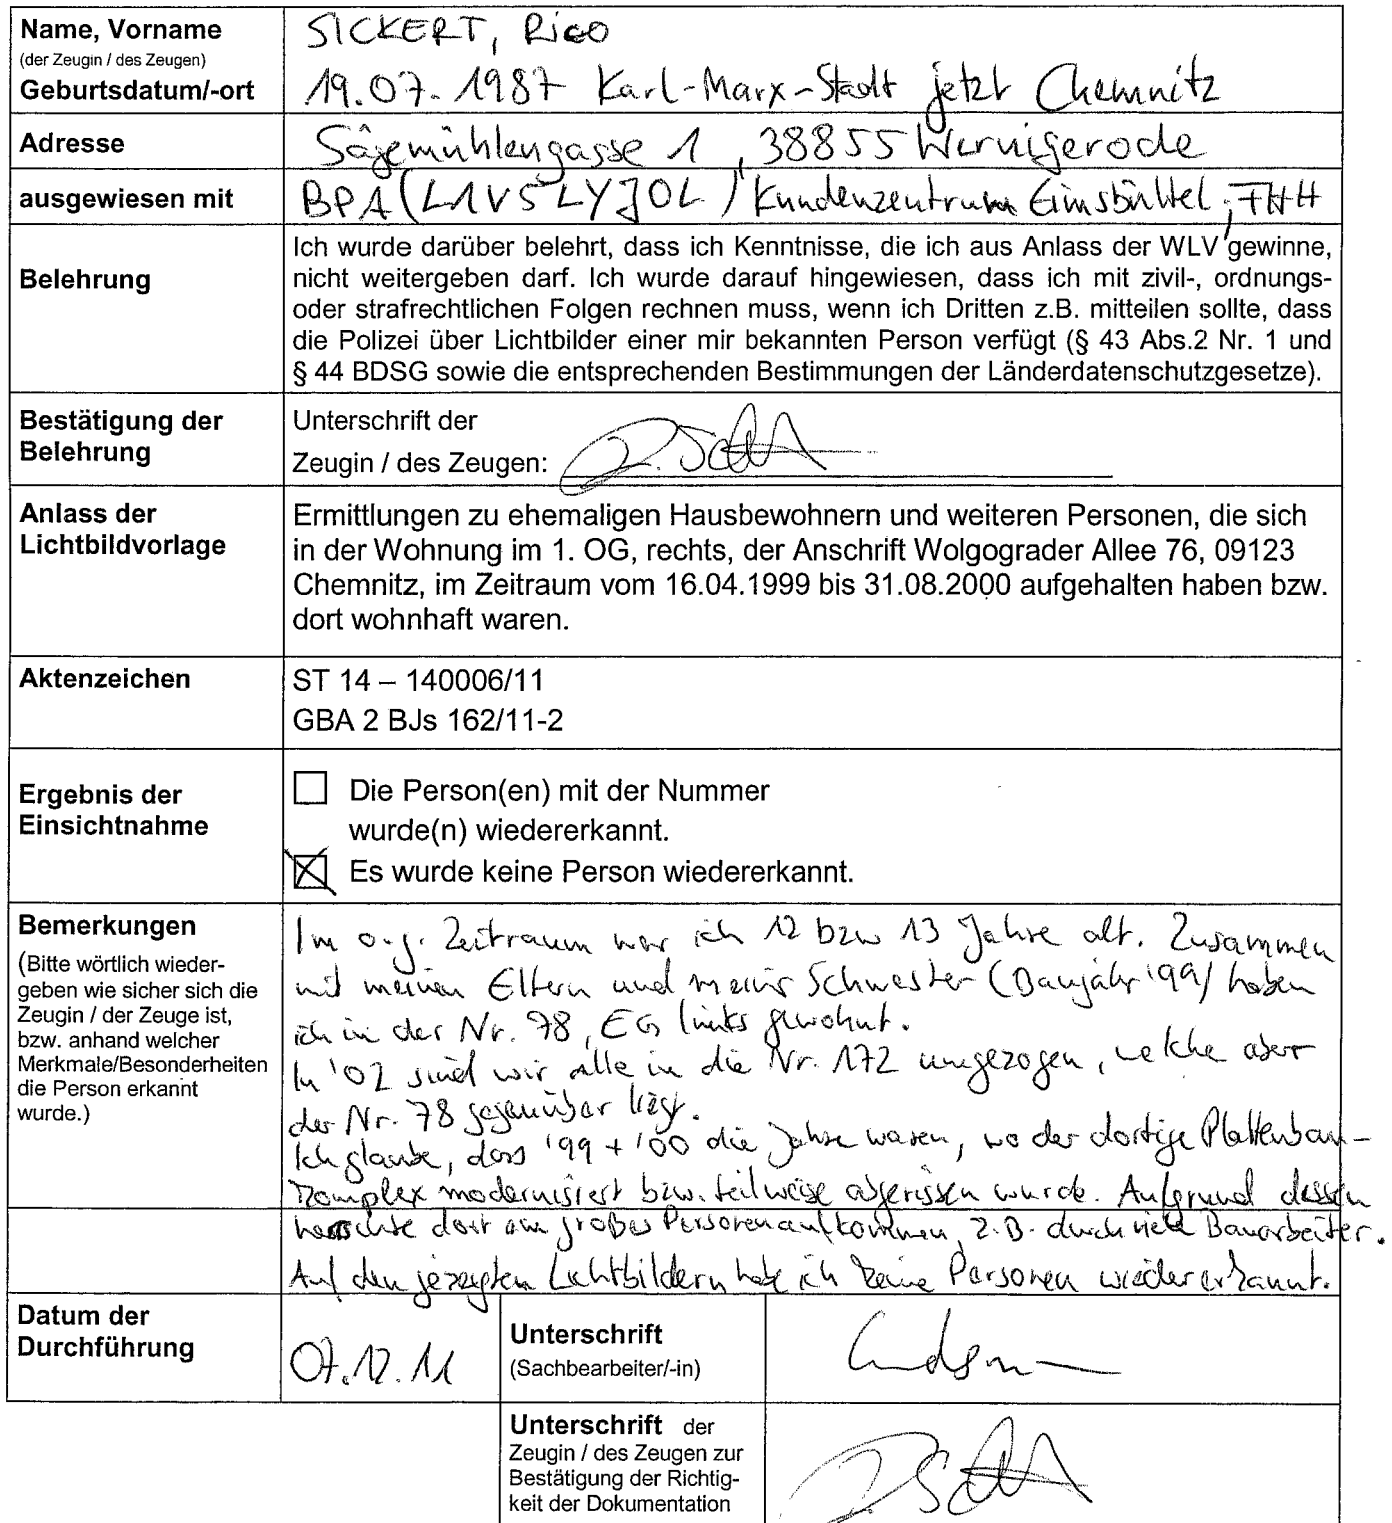 Name, Vorname
(der Zeugin / des Zeugen)
Geburtsdatum/-ort
SICKERT, Rico
19.07.1987 Karl-Marx-Stadt jetzt Chemnitz
Adresse
Sägemühlengasse 1, 38855 Wernigerode
ausgewiesen mit
BPA (L1V5LYJOL) Kundenzentrum Eimsbüttel, FHH
Belehrung
Ich wurde darüber belehrt, dass ich Kenntnisse, die ich aus Anlass der WLV gewinne,
nicht weitergeben darf. Ich wurde darauf hingewiesen, dass ich mit zivil-, ordnungs-
oder strafrechtlichen Folgen rechnen muss, wenn ich Dritten z.B. mitteilen sollte, dass
die Polizei über Lichtbilder einer mir bekannten Person verfügt (§ 43 Abs.2 Nr. 1 und
§ 44 BDSG sowie die entsprechenden Bestimmungen der Länderdatenschutzgesetze).
Bestätigung der
Belehrung
Unterschrift der
Zeugin / des Zeugen:
Anlass der
Lichtbildvorlage
Ermittlungen zu ehemaligen Hausbewohnern und weiteren Personen, die sich
in der Wohnung im 1. OG, rechts, der Anschrift Wolgograder Allee 76, 09123
Chemnitz, im Zeitraum vom 16.04.1999 bis 31.08.2000 aufgehalten haben bzw.
dort wohnhaft waren.
Aktenzeichen
ST 14 – 140006/11
GBA 2 BJs 162/11-2
Ergebnis der
Einsichtnahme
Die Person(en) mit der Nummer
wurde(n) wiedererkannt.
Es wurde keine Person wiedererkannt.
Bemerkungen
(Bitte wörtlich wieder-
geben wie sicher sich die
Zeugin / der Zeuge ist,
bzw. anhand welcher
Merkmale/Besonderheiten
die Person erkannt
wurde.)
Im o.g. Zeitraum war ich 12 bzw 13 Jahre alt. Zusammen
mit meinen Eltern und meiner Schwester (Baujahr '99) haben
ich in der Nr. 78, EG links gewohnt.
In '02 sind wir alle in die Nr. 172 umgezogen, welche aber
der Nr. 78 gegenüber liegt.
Ich glaube, dass '99 + '00 die Jahre waren, wo der dortige Plattenbau-
komplex modernisiert bzw. teilweise abgerissen wurde. Aufgrund dessen
herrschte dort ein großes Personenaufkommen, z.B. durch viele Bauarbeiter.
Auf den gezeigten Lichtbildern habe ich keine Personen wiedererkannt.
Datum der
Durchführung
07.12.11
Unterschrift
(Sachbearbeiter/-in)
Unterschrift der
Zeugin / des Zeugen zur
Bestätigung der Richtig-
keit der Dokumentation